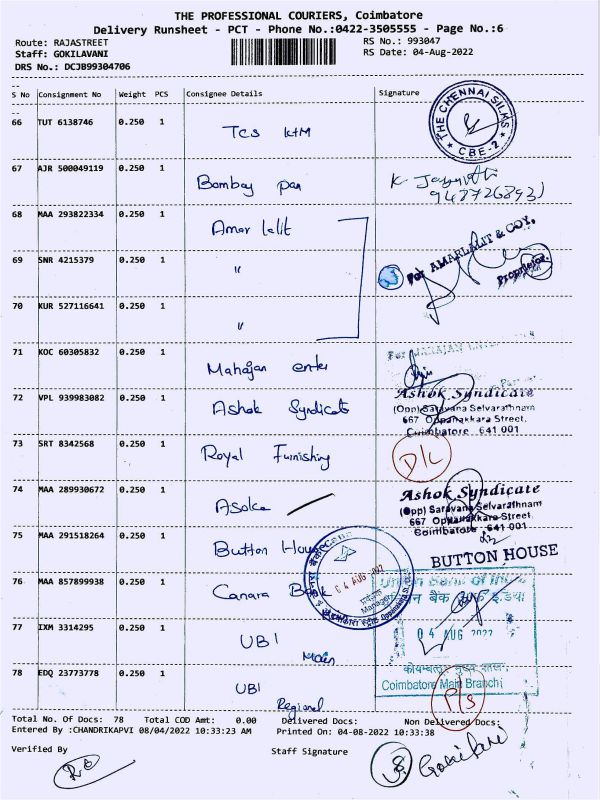 THE PROFESSIONAL COURIERS, Coimbatore
Delivery Runsheet - PCT - Phone No.:0422-3505555 - Page No.:6
Route: RAJASTREET
RS No.: 993047
Staff: GOKILAVANI
RS Date: 04-Aug-2022
DRS No.: DCJB99304706
S No Consignment No Weight PCS Consignee Details Signature
66 TUT 6138746 0.250 1 TCS KTM
THE CHENNAI SILKS
CBE-2
67 AJR 500049119 0.250 1 Bombay pan
9487726893
68 MAA 293822334 0.250 1 Amar Lalit
For AMARLALIT & COY.
Proprietor.
69 SNR 4215379 0.250 1 "
70 KUR 527116641 0.250 1 "
71 KOC 60305832 0.250 1 Mahajan enter
72 VPL 939983082 0.250 1 Ashok Syndicate
Ashok Syndicate
(Opp) Saravana Selvarathnam
667 Oppanakkara Street,
Coimbatore - 641 001
73 SRT 8342568 0.250 1 Royal Furnishing
D/L
74 MAA 289930672 0.250 1 Asoka
Ashok Syndicate
(Opp) Saravana Selvarathnam
667 Oppanakkara Street,
Coimbatore - 641 001
75 MAA 291518264 0.250 1 Button House
BUTTON HOUSE
76 MAA 857899938 0.250 1 Canara Bank
04 AUG 2022
Union Bank of India
77 IXM 3314295 0.250 1 UBI Main
04 AUG 2022
Coimbatore Main Branch
78 EDQ 23773778 0.250 1 UBI Regional
P/S
Total No. Of Docs: 78 Total COD Amt: 0.00 Delivered Docs: Non Delivered Docs:
Entered By :CHANDRIKAPVI 08/04/2022 10:33:23 AM Printed On: 04-08-2022 10:33:38
Verified By
Staff Signature